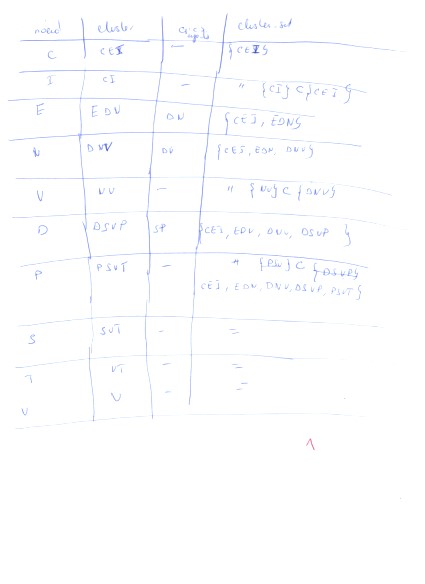 cluster cluster-set
C CEI — {CEI}
I CI — " {CI} ⊂ {CEI}
E EDN DN {CEI, EDN}
N DNV DV {CEI, EDN, DNV}
V NV — " {NV} ⊂ {DNV}
D DSVP SP {CEI, EDN, DNV, DSVP}
P PSVT — "
CEI, EDN, DNV, DSVP, PSVT}
S SVT — =
T VT — =
V V — =
1